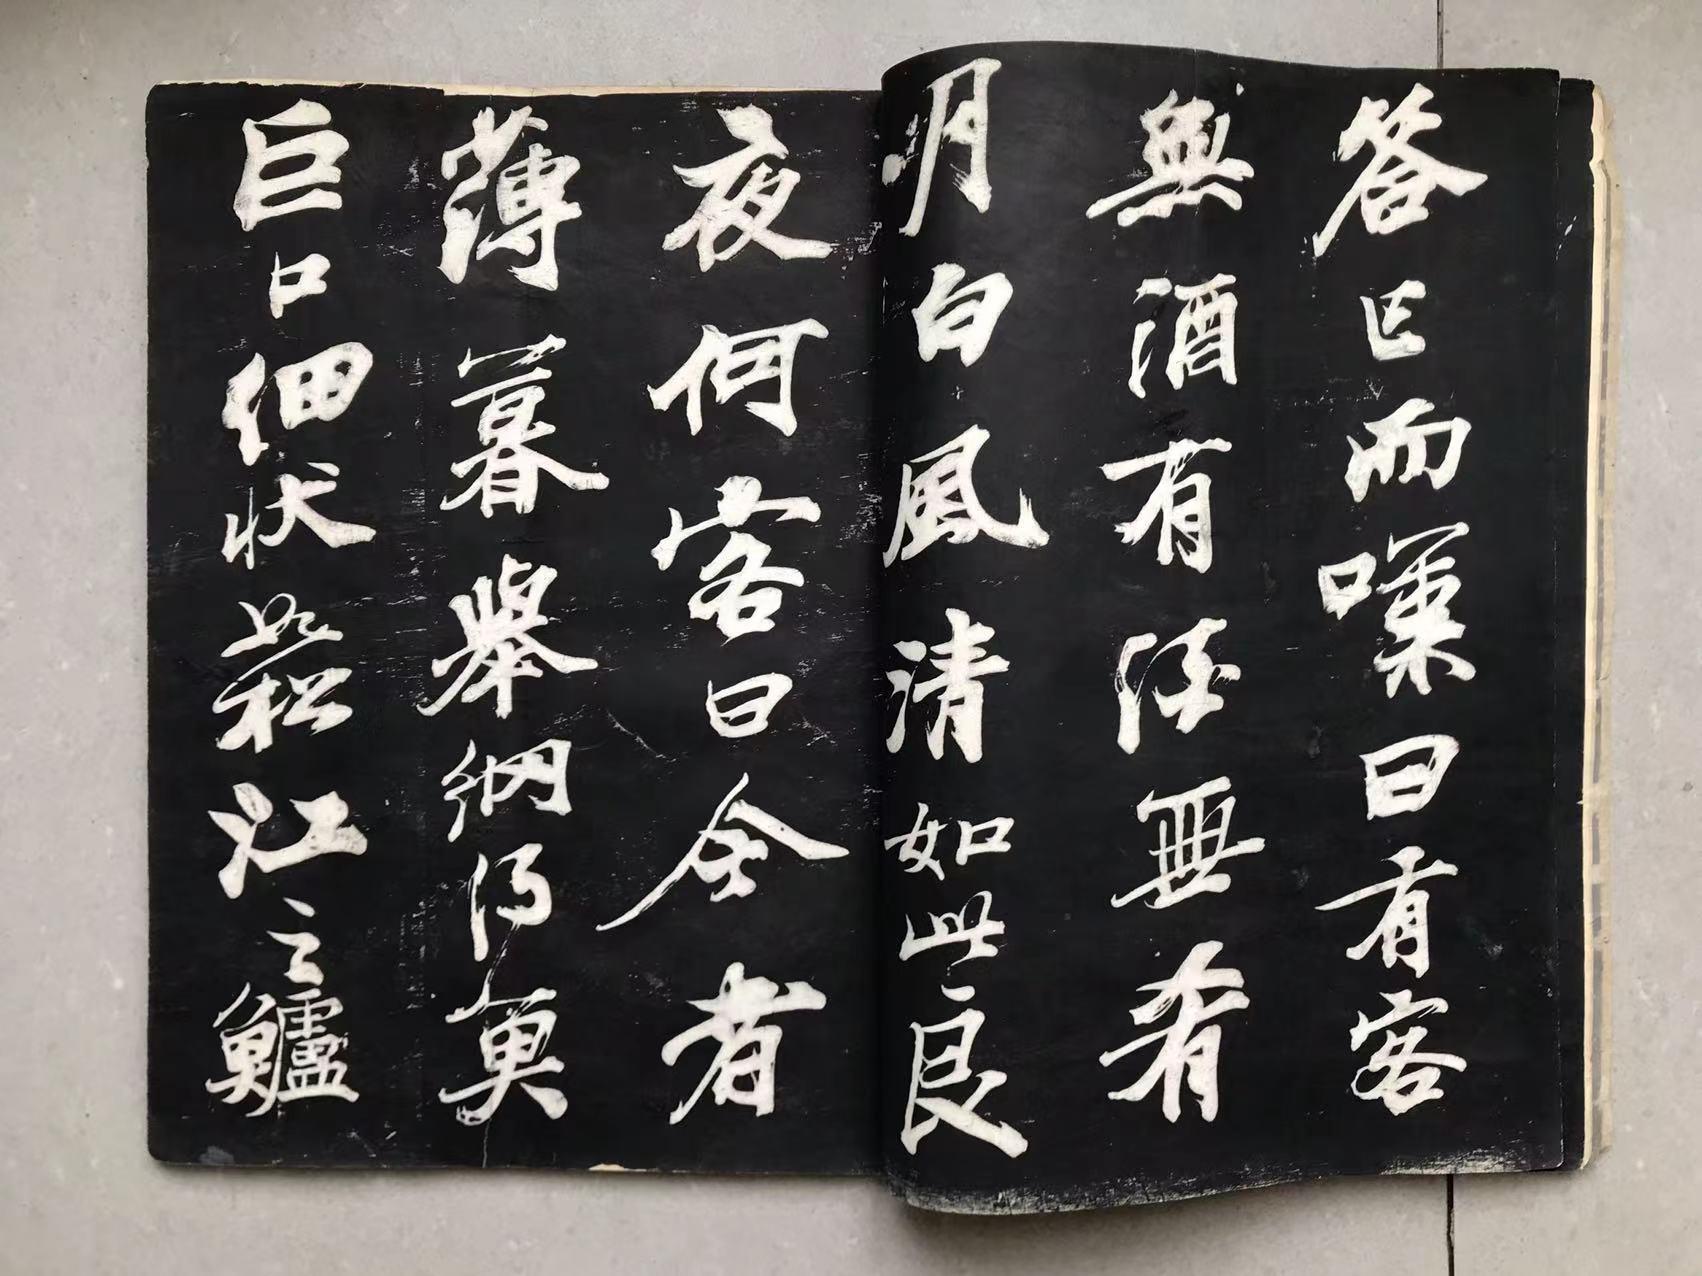 答已而嘆曰有客
無酒有酒無肴
月白風清如此良
夜何客曰今者
薄暮舉網得魚
巨口細狀如松江之鱸